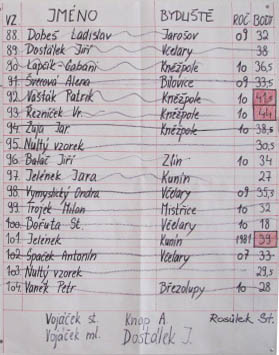 VZ. JMÉNO BYDLIŠTĚ ROČ. BODY
88. Dobeš Ladislav Jarošov 09 32
89. Dostálek Jiří Včelary 38
90. Lapčík-Gabani Kněžpole 10 36,5
91. Šverová Alena Bílovice 09 33,5
92. Vašták Patrik Kněžpole 10
93. Řezníček Vr. Kněžpole 10 44
94. Zuja Jar Kněžpole 10 38,5
95. Nultý vzorek 30,5
96. Balač Jiří Zlín 10 34
97. Jelének Jara Kunín 27
98. Vymyslický Ondra Včelary 09 35,3
99. Trojek Milan Mistřice 10 32
100. Bořuta St. Včelary 10 18
101. Jelének Kunín 1981 39
102. Špaček Antonín Včelary 07 33
103. Nultý vzorek 29,5
104. Vaněk Petr Březolupy 10 28
Vojáček st. Knop A. Rosůlek St.
Vojáček ml. Dostálek J.